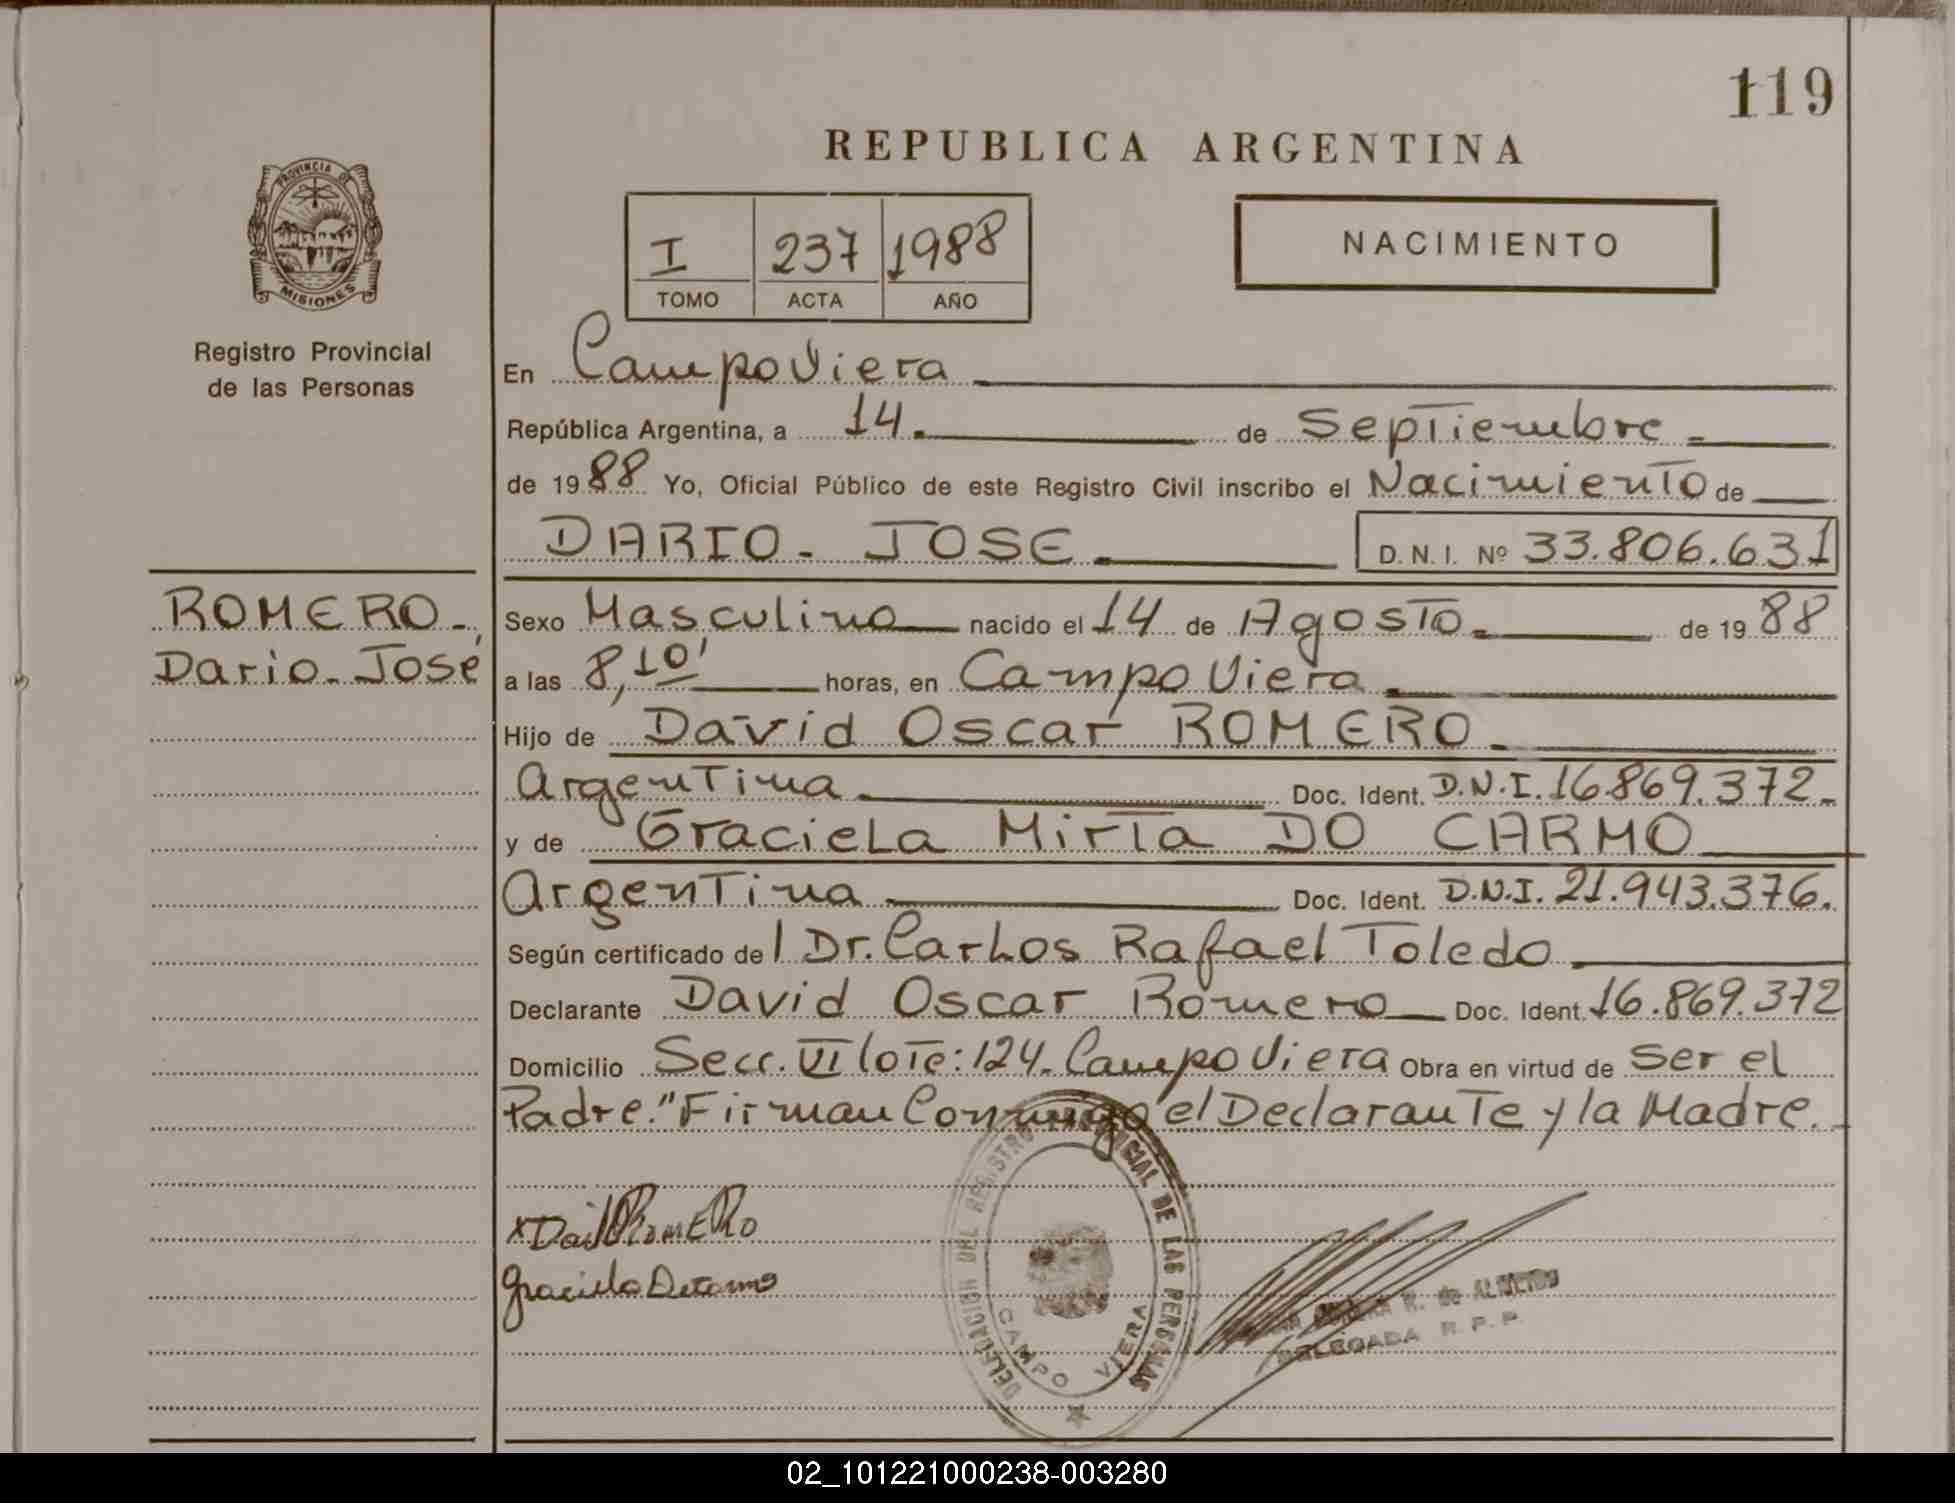 119
REPUBLICA ARGENTINA
PROVINCIA DE
MISIONES
Registro Provincial
de las Personas
I 237 1988
TOMO ACTA AÑO
NACIMIENTO
En Campo Viera
República Argentina, a 14. de Septiembre
de 1988 Yo, Oficial Público de este Registro Civil inscribo el Nacimiento de
DARIO - JOSE D.N.I. Nº 33.806.631
ROMERO -
Dario - José
Sexo Masculino nacido el 14 de Agosto de 1988
a las 8,10' horas, en Campo Viera
Hijo de David Oscar ROMERO
Argentina Doc. Ident. D.N.I. 16.869.372
y de Graciela Mirta DO CARMO
Argentina Doc. Ident. D.N.I. 21.943.376.
Según certificado del Dr. Carlos Rafael Toledo
Declarante David Oscar Romero Doc. Ident. 16.869.372
Domicilio Secc. VI lote: 124. Campo Viera Obra en virtud de ser el
Padre." Firman Conmigo el Declarante y la Madre.
DELEGACION DEL REGISTRO PROVINCIAL DE LAS PERSONAS
CAMPO VIERA
x David Romero
Graciela Docarmo
DELEGADA R. P. P.
02_101221000238-003280